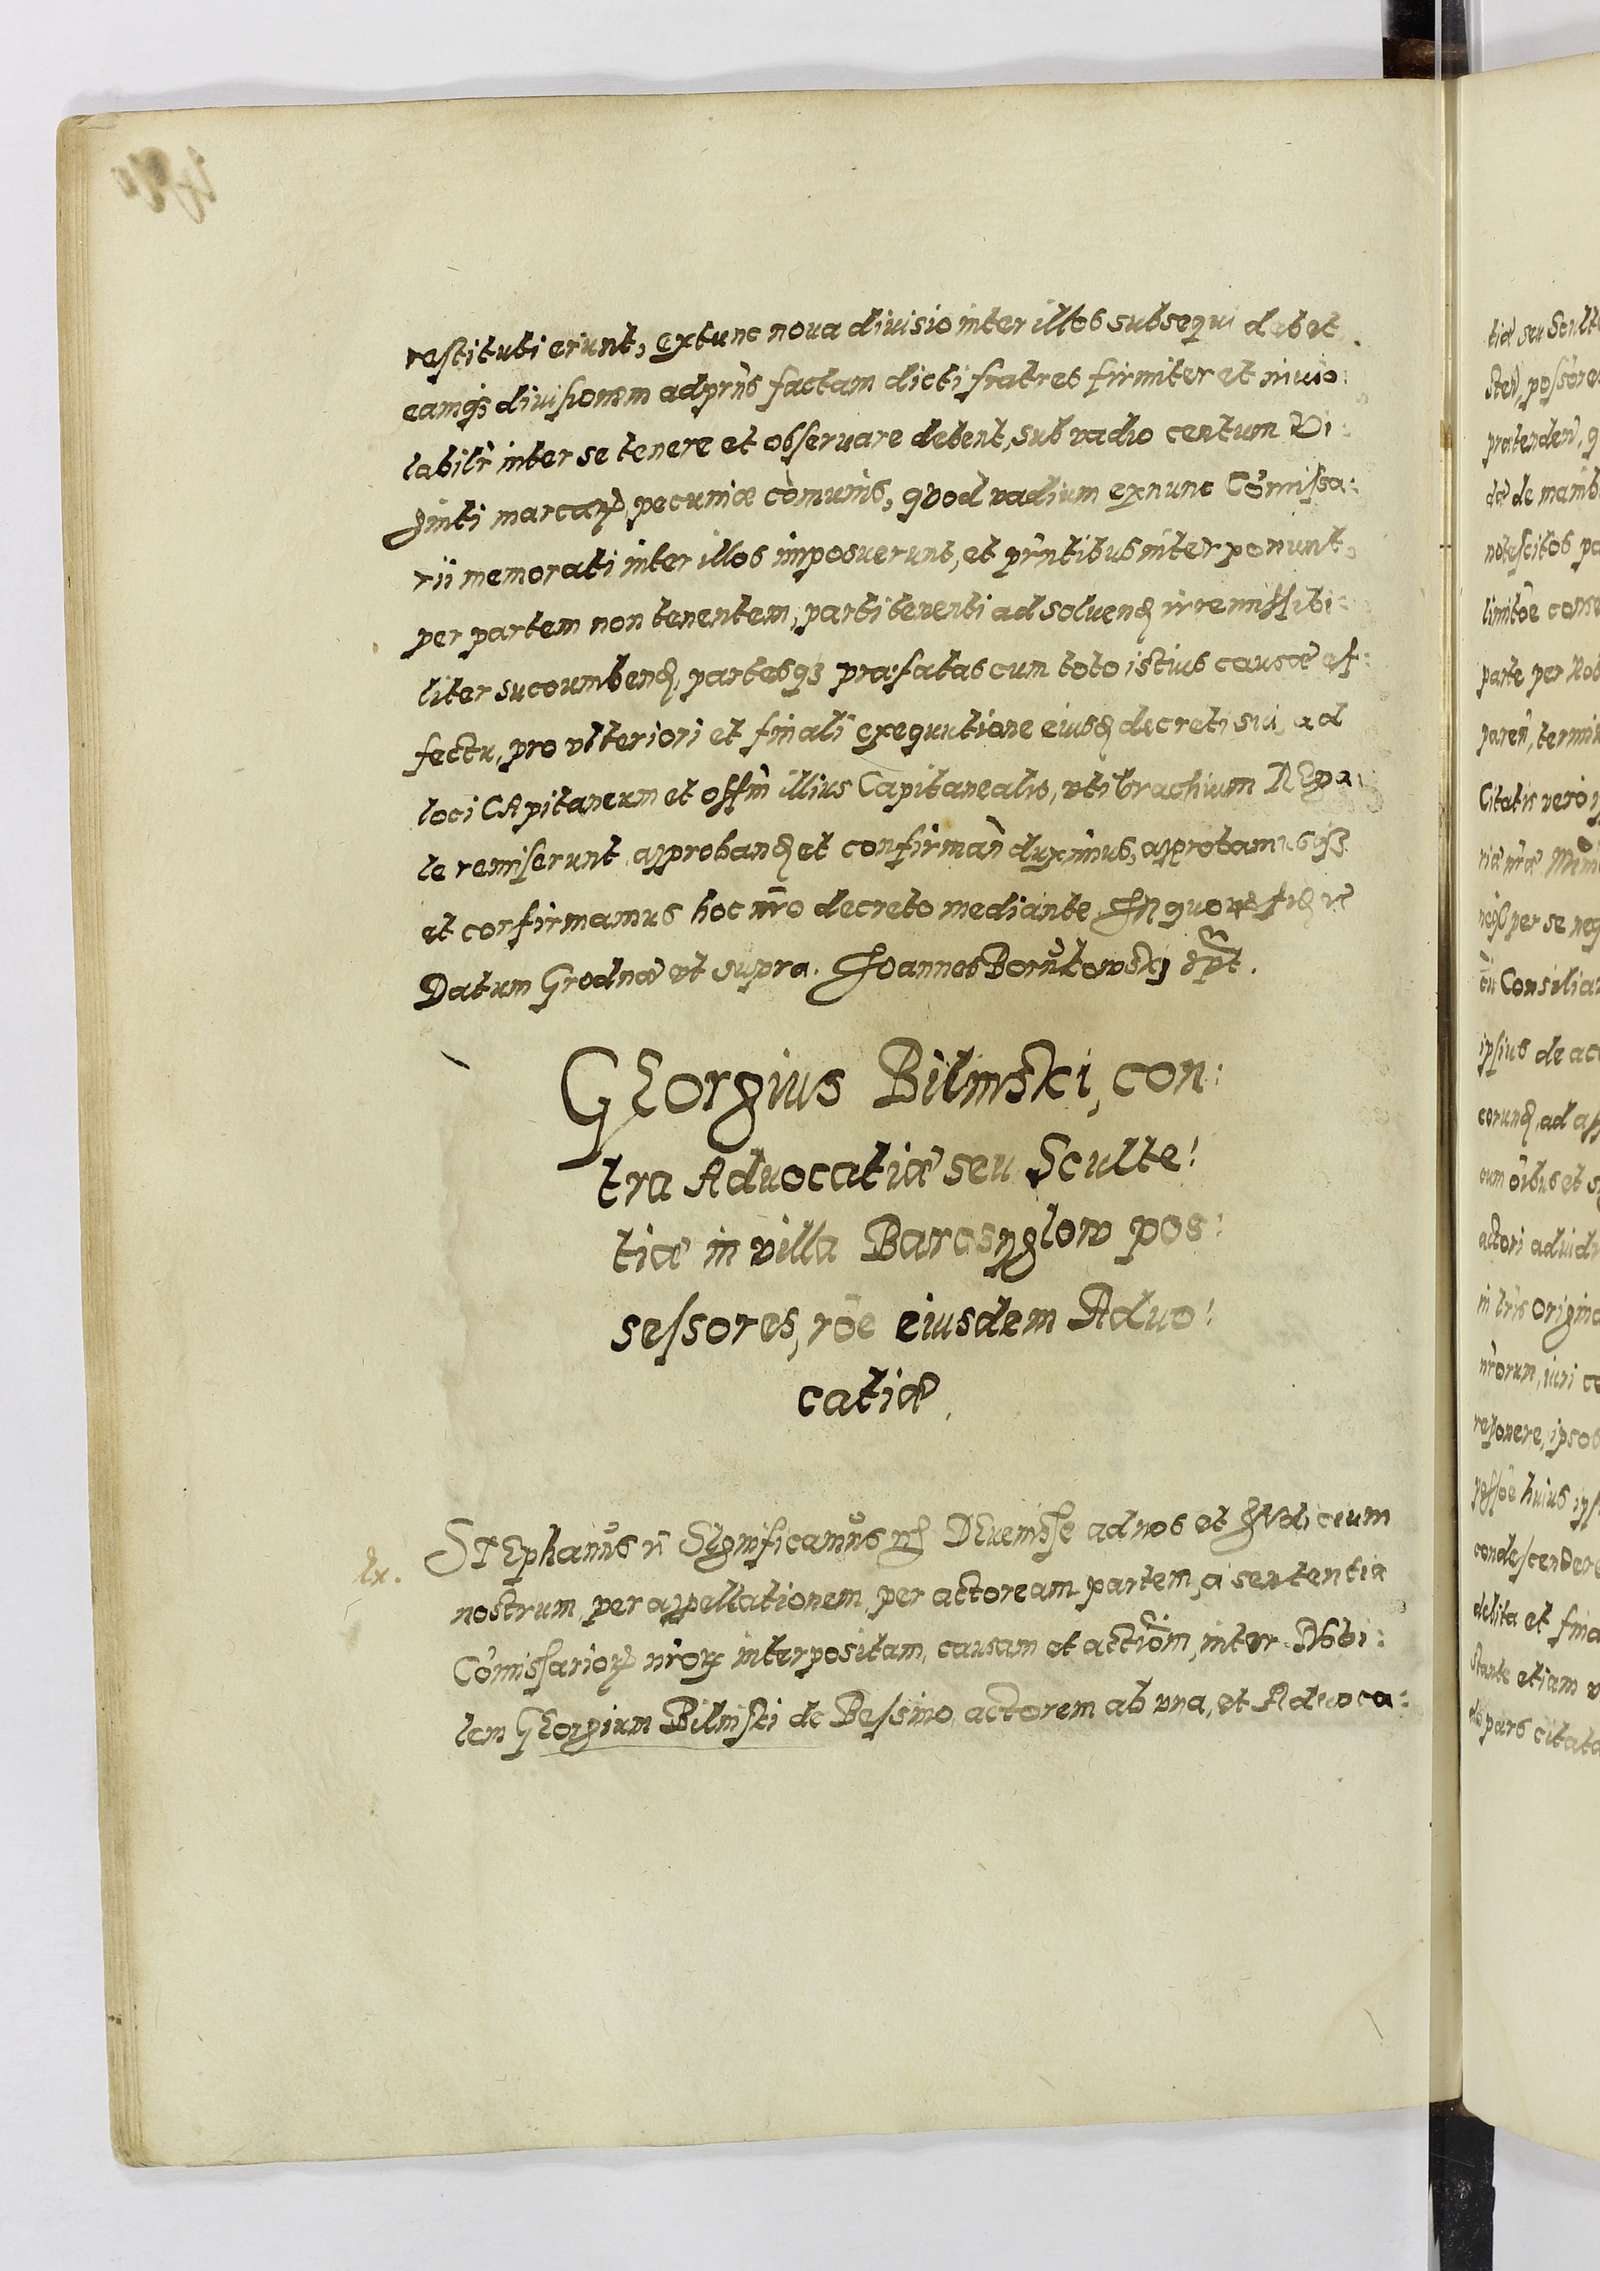 restituti erunt, extunc noua diuisio inter illos subsequi debet.
eamq₃ diuisionem adprn̄s factam dicti fratres firmiter et inuio:
labilr̄ inter se tenere et obseruare debent, sub vadio centum Vi:
ginti marcarꝝ pecuniæ cōmunis, quod vadium exnunc Cōmissa:
rii memorati inter illos imposuerunt, et prn̄tibus interponunt,
per partem non tenentem, parti tenenti ad soluenꝺ irremissibi:
liter succumbenꝺ, partesq₃ præfatas cum toto istius causæ ef:
fectu, pro vlteriori et finali exequutione eiusꝺ decreti sui, ad
loci CApitaneum et offm̄ illius Capitanealis, vti brachium REga:
le remiserunt approbanꝺ et confirman̄ duximus, approbamusq₃
et confirmamus hoc nr̄o decreto mediante In quorꝝ fidꝫ rē
Datum Grodnæ vt supra. Joannes Borukowskj spt̄.
GEorgius Bilinski, con:
tra Aduocatiæ seu Sculte:
tiæ in villa Barcsyglow pos:
sessores, rōe eiusdem Aduo:
catiæ,
lx.
STEphanus rī SIgnificamus rꝫ DEuenisse ad nos et INdicium
nostrum, per appellationem, per actoream partem, a sententia
Cōmissariorꝝ nr̄orꝝ interpositam, causam et actiōm, inter Nobi:
lem GEorgium Bilinski de Bessino, actorem ab vna, et Aduoca:
tiæ seu Sculte
pratenden̄, q
de manib
notescitos pa
limitōe conse
parte per Nob
paren̄, termin
Citatis vero p
per se neq
Consiliar
ipsius de act
eorunꝺ, ad ap
cum oībus et s
actori adiudi
in lr̄is origina
nr̄orum, iuri ce
reponere, ipsos
huius ips
condescendere
debita et fina
stante etiam v
pars citata